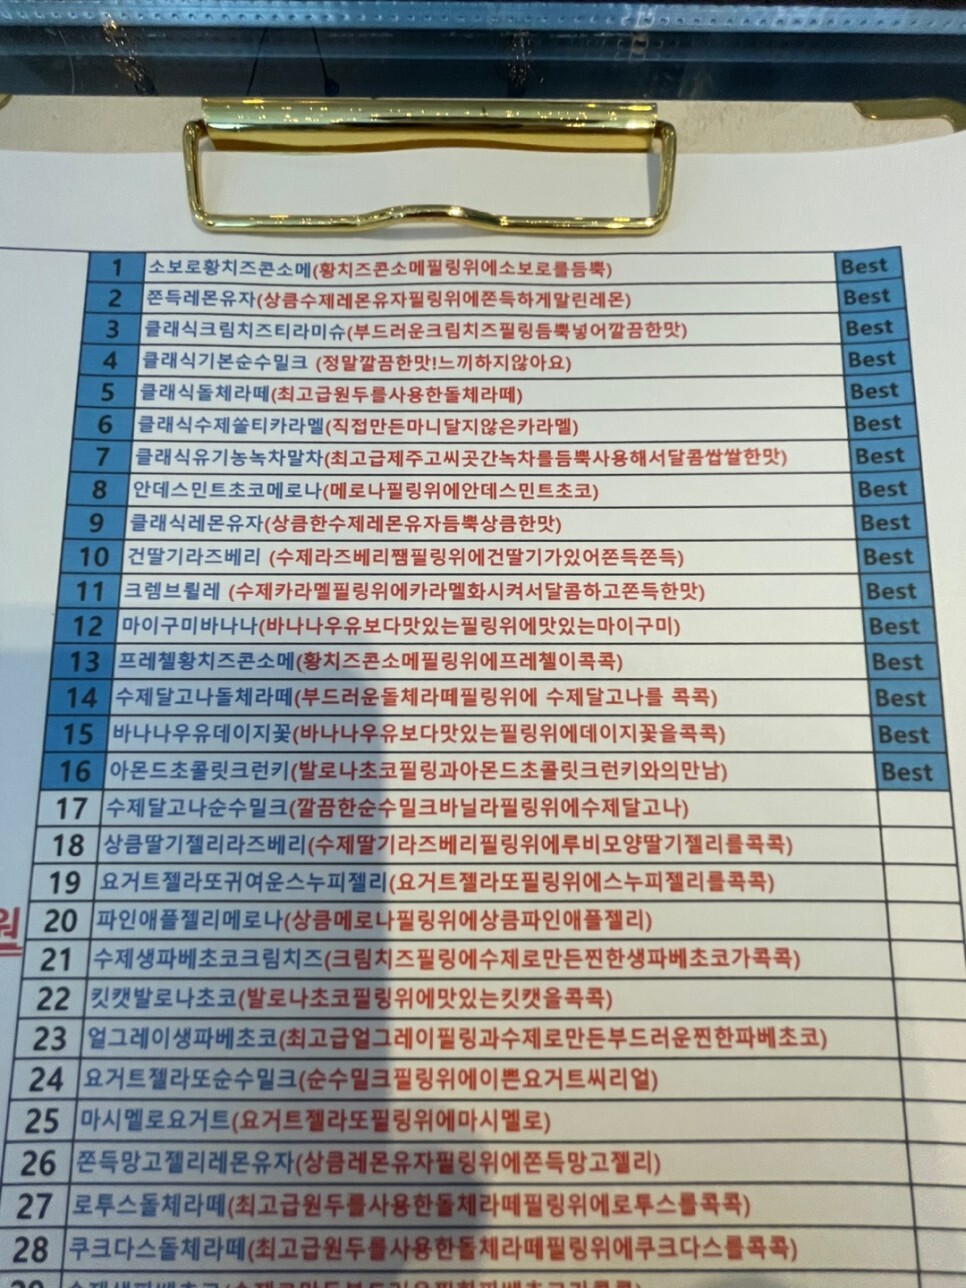 1 소보로황치즈콘소메(황치즈콘소메필링위에소보로를듬뿍) Best
2 쫀득레몬유자(상큼수제레몬유자필링위에쫀득하게말린레몬) Best
3 클래식크림치즈티라미슈(부드러운크림치즈필링듬뿍넣어깔끔한맛) Best
4 클래식기본순수밀크 (정말깔끔한맛!느끼하지않아요) Best
5 클래식돌체라떼(최고급원두를사용한돌체라떼) Best
6 클래식수제쏠티카라멜(직접만든마니달지않은카라멜) Best
7 클래식유기농녹차말차(최고급제주고씨곳간녹차를듬뿍사용해서달콤쌉쌀한맛) Best
8 안데스민트초코메로나(메로나필링위에안데스민트초코) Best
9 클래식레몬유자(상큼한수제레몬유자듬뿍상큼한맛) Best
10 건딸기라즈베리 (수제라즈베리쨈필링위에건딸기가있어쫀득쫀득) Best
11 크렘브륄레 (수제카라멜필링위에카라멜화시켜서달콤하고쫀득한맛) Best
12 마이구미바나나(바나나우유보다맛있는필링위에맛있는마이구미) Best
13 프레첼황치즈콘소메(황치즈콘소메필링위에프레첼이콕콕) Best
14 수제달고나돌체라떼(부드러운돌체라떼필링위에 수제달고나를 콕콕) Best
15 바나나우유데이지꽃(바나나우유보다맛있는필링위에데이지꽃을콕콕) Best
16 아몬드초콜릿크런키(발로나초코필링과아몬드초콜릿크런키와의만남) Best
17 수제달고나순수밀크(깔끔한순수밀크바닐라필링위에수제달고나)
18 상큼딸기젤리라즈베리(수제딸기라즈베리필링위에루비모양딸기젤리를콕콕)
19 요거트젤라또귀여운스누피젤리(요거트젤라또필링위에스누피젤리를콕콕)
원
20 파인애플젤리메로나(상큼메로나필링위에상큼파인애플젤리)
21 수제생파베초코크림치즈(크림치즈필링에수제로만든찐한생파베초코가콕콕)
22 킷캣발로나초코(발로나초코필링위에맛있는킷캣을콕콕)
23 얼그레이생파베초코(최고급얼그레이필링과수제로만든부드러운찐한파베초코)
24 요거트젤라또순수밀크(순수밀크필링위에이쁜요거트씨리얼)
25 마시멜로요거트(요거트젤라또필링위에마시멜로)
26 쫀득망고젤리레몬유자(상큼레몬유자필링위에쫀득망고젤리)
27 로투스돌체라떼(최고급원두를사용한돌체라떼필링위에로투스를콕콕)
28 쿠크다스돌체라떼(최고급원두를사용한돌체라떼필링위에쿠크다스를콕콕)